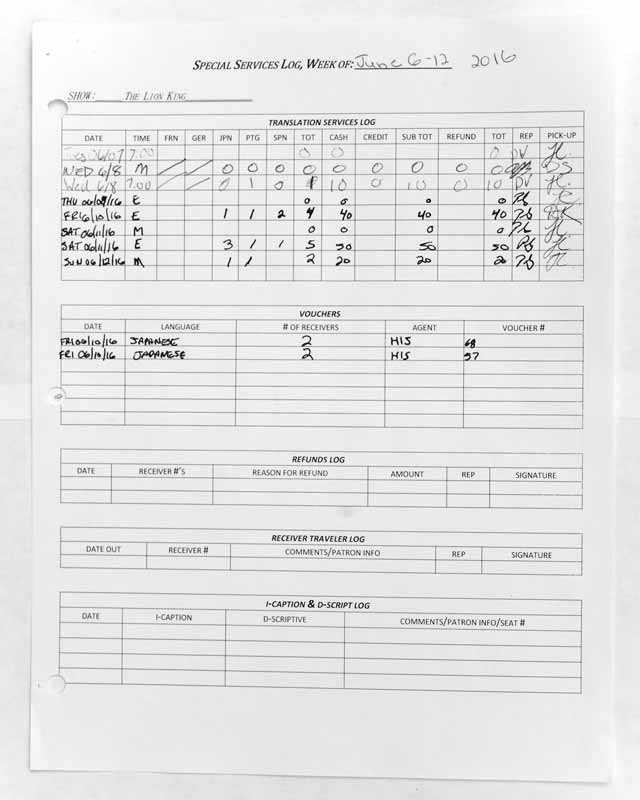 SPECIAL SERVICES LOG, WEEK OF: June 6-12 2016
SHOW: THE LION KING
TRANSLATION SERVICES LOG
DATE TIME FRN GER JPN PTG SPN TOT CASH CREDIT SUB TOT REFUND TOT REP PICK-UP
Tues 06/07 7:00 0 0 0 DV
WED 6/8 M 0 0 0 0 0 0 0 0 0
Wed 6/8 7:00 0 1 0 1 10 0 10 0 10 DV
THU 06/09/16 E 0 0 0 0
FRI 6/10/16 E 1 1 2 4 40 40 40
SAT 06/11/16 M 0 0 0 0
SAT 06/11/16 E 3 1 1 5 50 50 50
SUN 06/12/16 M 1 1 2 20 20 20
VOUCHERS
DATE LANGUAGE # OF RECEIVERS AGENT VOUCHER #
FRI 06/10/16 JAPANESE 2 HIS 68
FRI 06/10/16 JAPANESE 2 HIS 57
REFUNDS LOG
DATE RECEIVER #'S REASON FOR REFUND AMOUNT REP SIGNATURE
RECEIVER TRAVELER LOG
DATE OUT RECEIVER # COMMENTS/PATRON INFO REP SIGNATURE
I-CAPTION & D-SCRIPT LOG
DATE I-CAPTION D-SCRIPTIVE COMMENTS/PATRON INFO/SEAT #